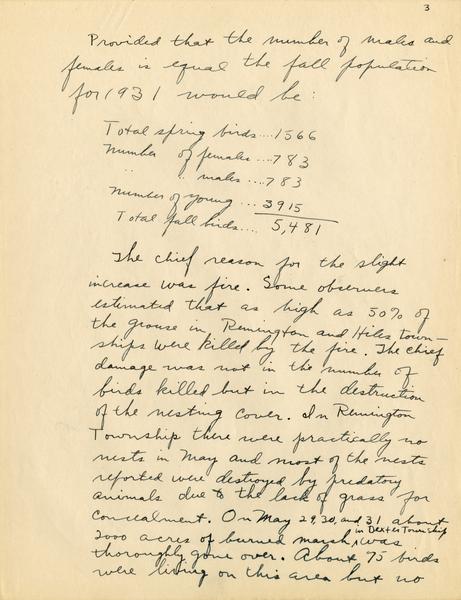 3
Provided that the number of males and
females is equal the fall population
for 1931 would be:
Total spring birds....1566
Number of females....783
" " males....783
Number of young ... 3915
Total fall birds.... 5,481
The chief reason for the slight
increase was fire. Some observers
estimated that as high as 50% of
the grouse in Remington and Hiles town-
ships were killed by the fire. The chief
damage was not in the number of
birds killed but in the destruction
of the nesting cover. In Remington
Township there were practically no
nests in May and most of the nests
reported were destroyed by predatory
animals due to the lack of grass for
concealment. On May 29, 30, and 31 about
2000 acres of burned marsh in Dexter Township was
thoroughly gone over. About 75 birds
were living on this area but no